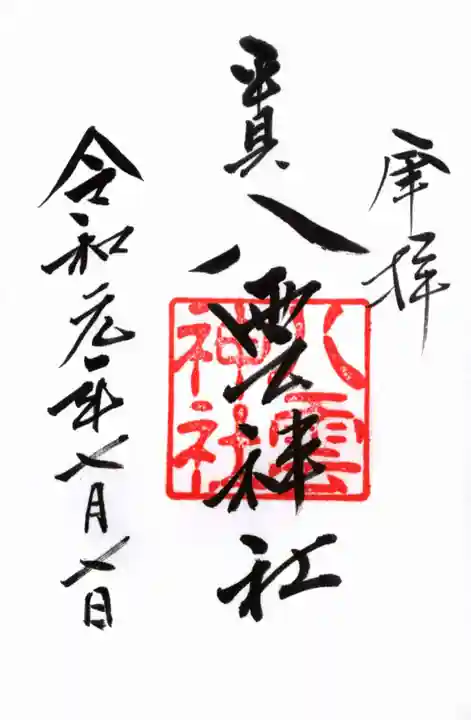 奉拝
八雲神社
八雲
神社
令和元年七月七日